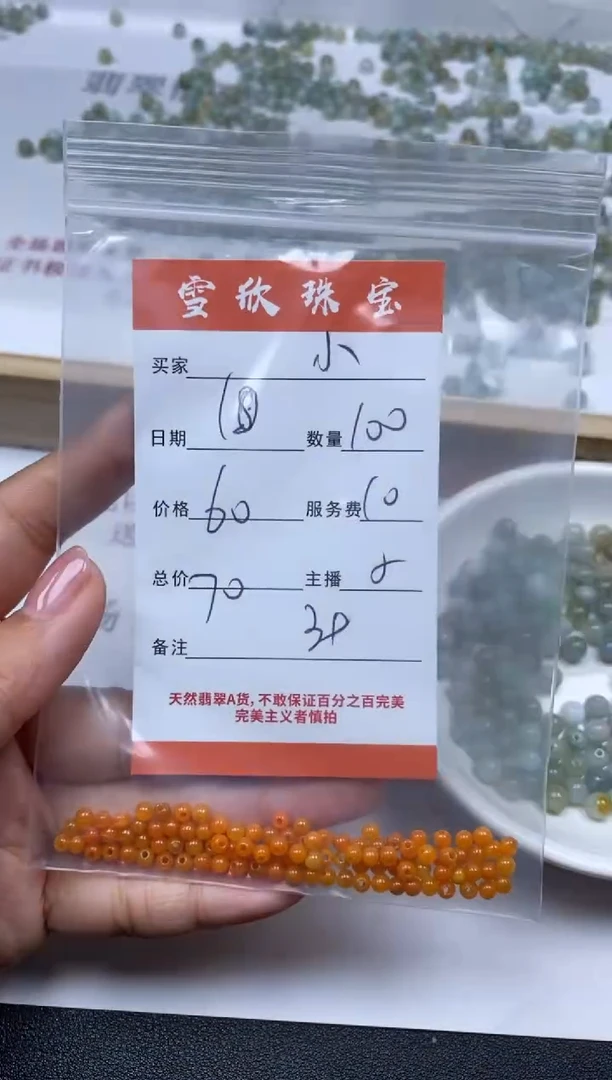 雪欣珠宝
买家 小
日期 数量 100
价格 60 服务费 10
总价 70 主播
备注
天然翡翠A货,不敢保证百分之百完美
完美主义者慎拍